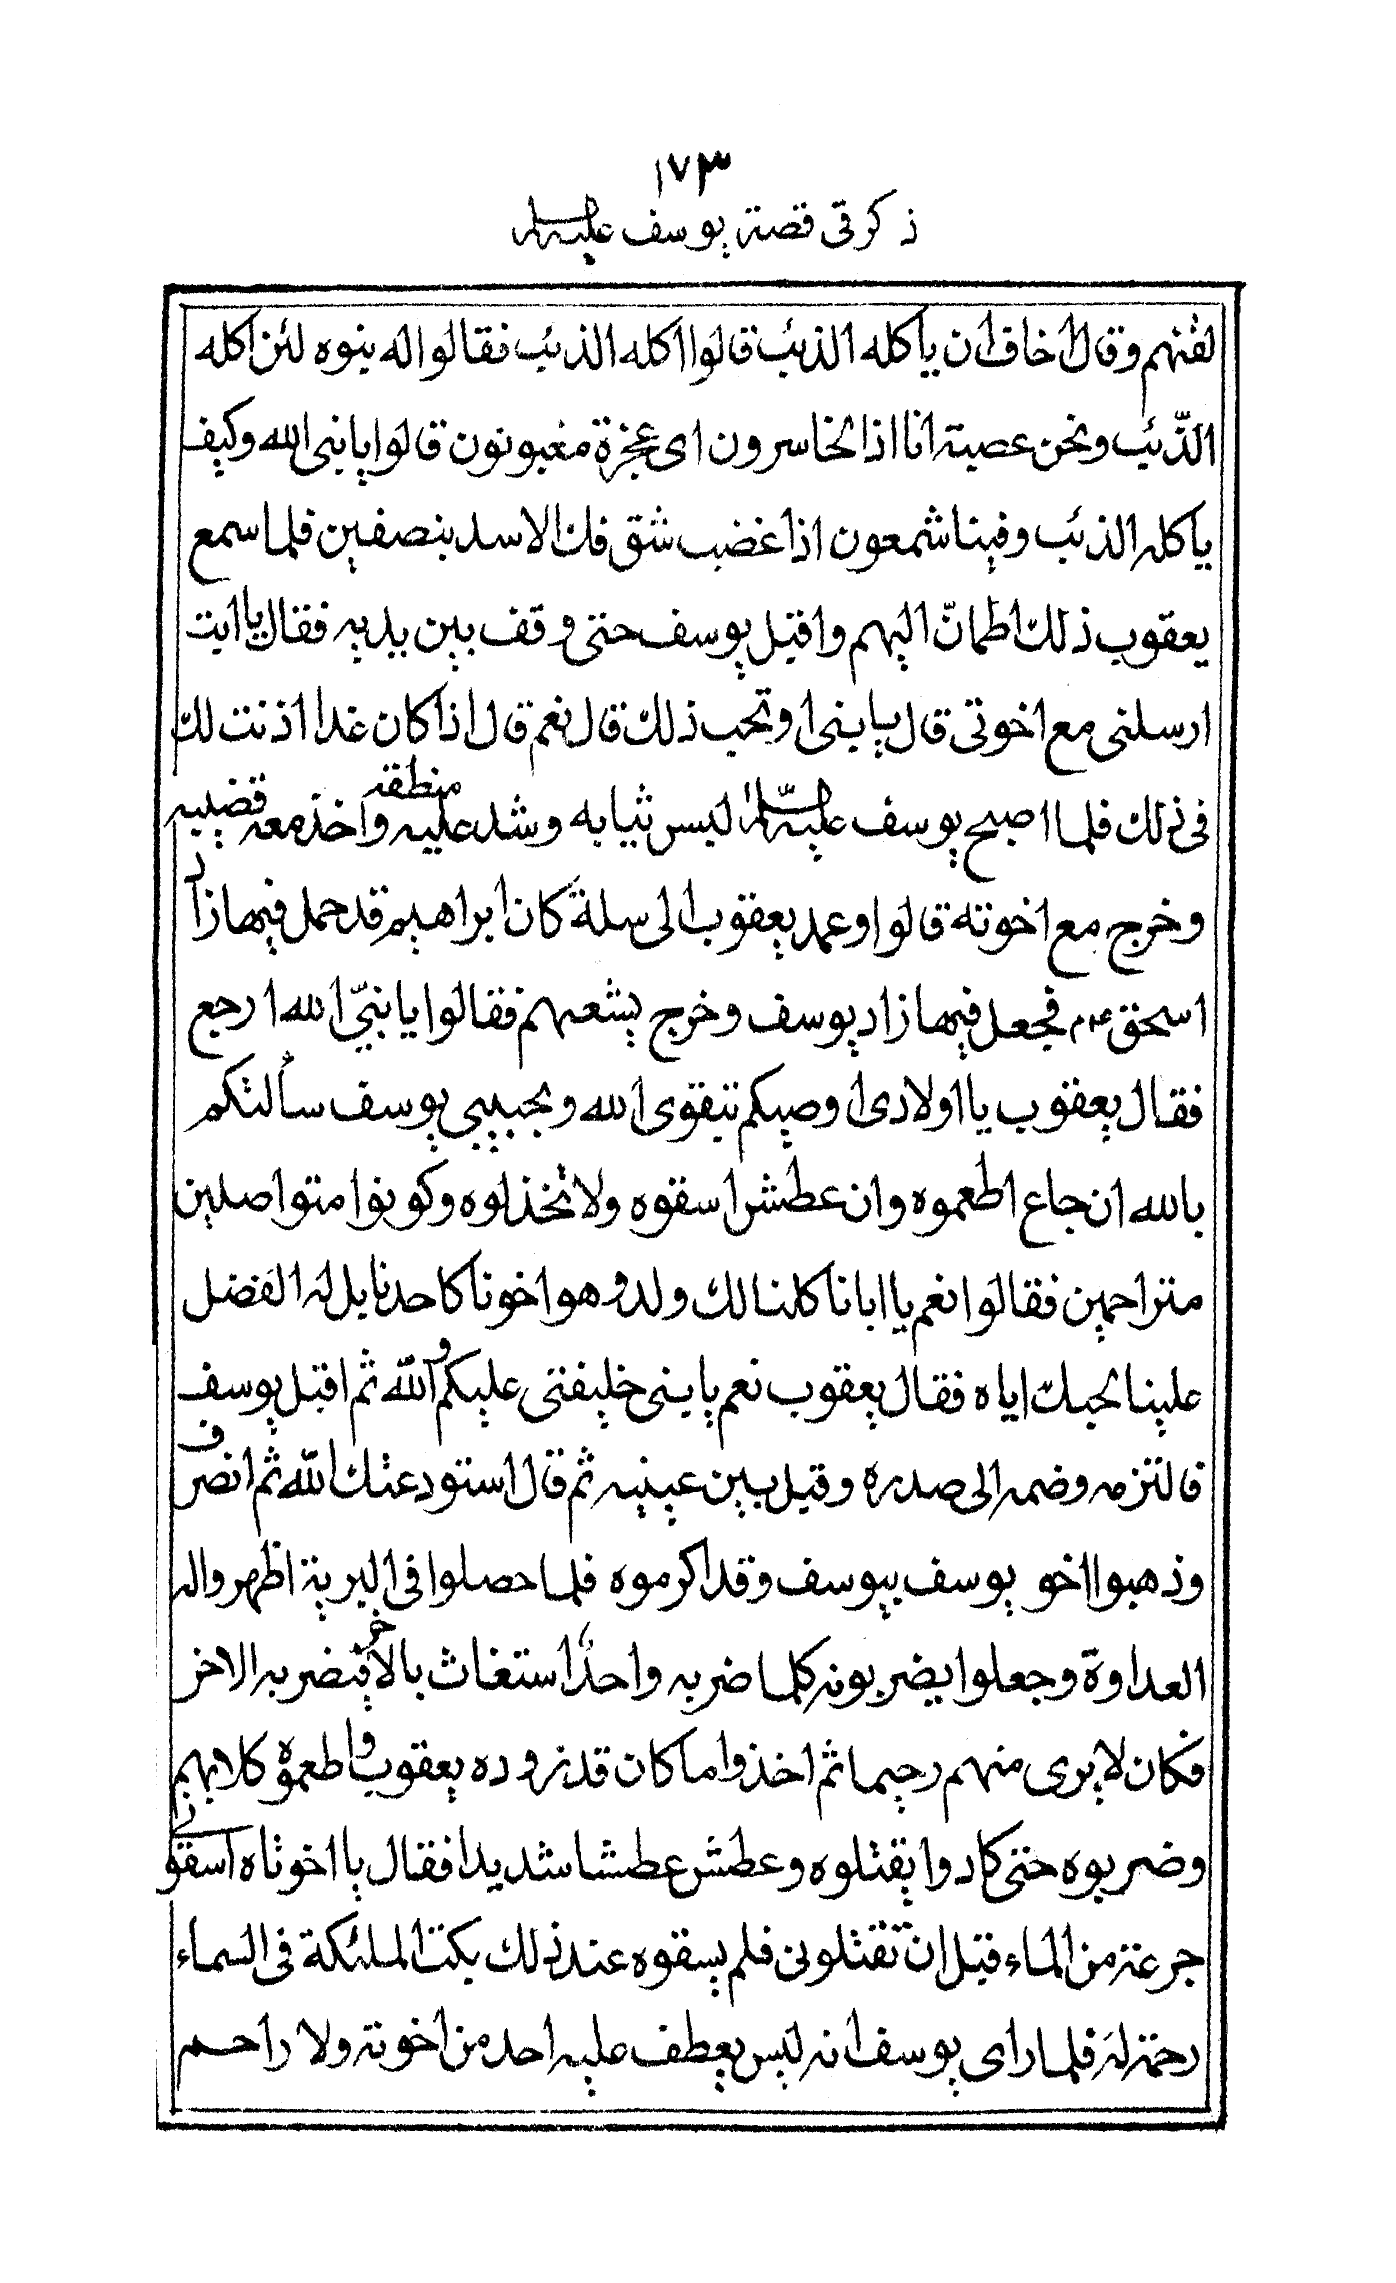 ١٧٣
ذكر في قصة يوسف عليه السلام
لقنهم وقال اخاف ان ياكله الذئب قالوا اكله الذئب فقالوا له بنوه لئن اكله
الذّئب ونحن عصبة انا اذا لخاسرون اى عجزة مغبونون قالوا يا نبى الله وكيف
ياكله الذئب وفينا شمعون اذا غضب شق فك الاسد بنصفين فلما سمع
يعقوب ذلك اطمانّ اليهم واقبل يوسف حتى وقف بين يديه فقال يا ابت
ارسلنى مع اخوتى قال يا بنى او تحب ذلك قال نعم قال اذا كان غدا اذنت لك
فى ذلك فلما اصبح يوسف عليه السّلام لبس ثيابه وشد عليه منطقه واخذ معه قضيبه
وخرج مع اخوته قالوا وعمد يعقوب الى سلة كان ابراهيم قد حمل فيها زاد
اسحق ع م فجعل فيها زاد يوسف وخرج يشعهم فقالوا يا نبيّ الله ارجع
فقال يعقوب يا اولادى اوصيكم بتقوى الله وبحبيبي يوسف سألتكم
بالله ان جاع اطعموه وان عطش اسقوه ولا تخذلوه وكونوا متواصلين
متراحمين فقالوا نعم يا ابانا كلنا لك ولد وهو اخونا كاحدنا بل له الفضل
علينا لحبك اياه فقال يعقوب نعم يا بنى خليفتى عليكم والله ثم اقبل يوسف
فالتزمه وضمه الى صدره وقبل بين عينيه ثم قال استودعتك الله ثم انصرف
وذهبوا اخو يوسف بيوسف وقد اكرموه فلما حصلوا فى البرية اظهروا له
العداوة وجعلوا يضربونه كلما ضربه واحدا استغاث بالأخر فيضربه الاخر
فكان لا يرى منهم رحيما ثم اخذوا ما كان قد زوده يعقوب واطعموه كلابهم
وضربوه حتى كادوا يقتلوه وعطش عطشا شديدا فقال يا اخوتاه اسقونى
جرعة من الماء قبل ان تقتلونى فلم يسقوه عند ذلك بكت الملئكة فى السماء
رحمة له فلما راى يوسف انه ليس يعطف عليه احد من اخوته ولا راحم